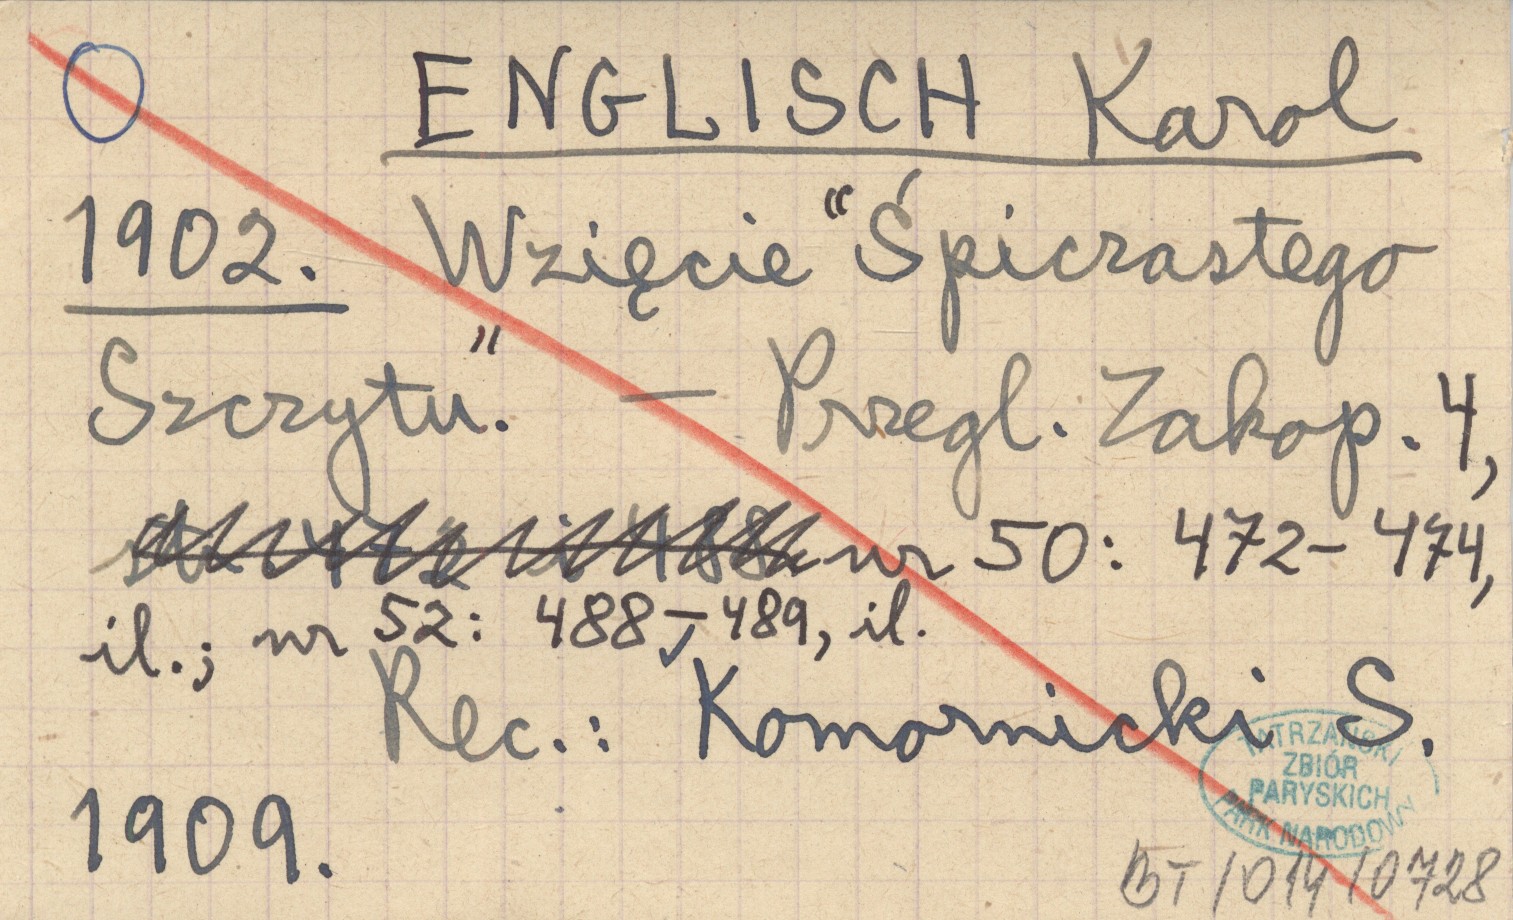 ENGLISCH Karol
1902. Wzięcie "Śpiczastego
Szczytu." — Przegl. Zakop. 4,
nr 50: 472-474,
il.; nr 52: 488-489, il.
Rec.: Komornicki S.
1909.
TATRZAŃSKI
ZBIÓR
PARYSKICH
PARK NARODOWY
BT/014/0728